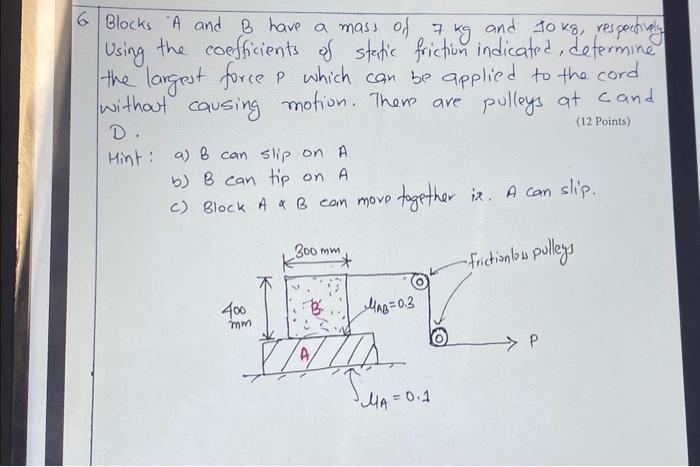 6 Blocks A and B have a mass of 7 kg and 10 kg, respectively
Using the coefficients of static friction indicated, determine
the largest force P which can be applied to the cord
without causing motion. There are pulleys at C and
D.
(12 Points)
Hint: a) B can slip on A
b) B can tip on A
c) Block A & B can move together ie. A can slip.
300 mm
frictionless pulleys
400
mm
B
μAB=0.3
A
P
μA=0.1